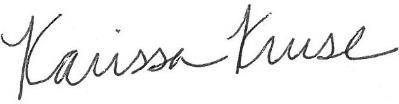 Karissa Kruse